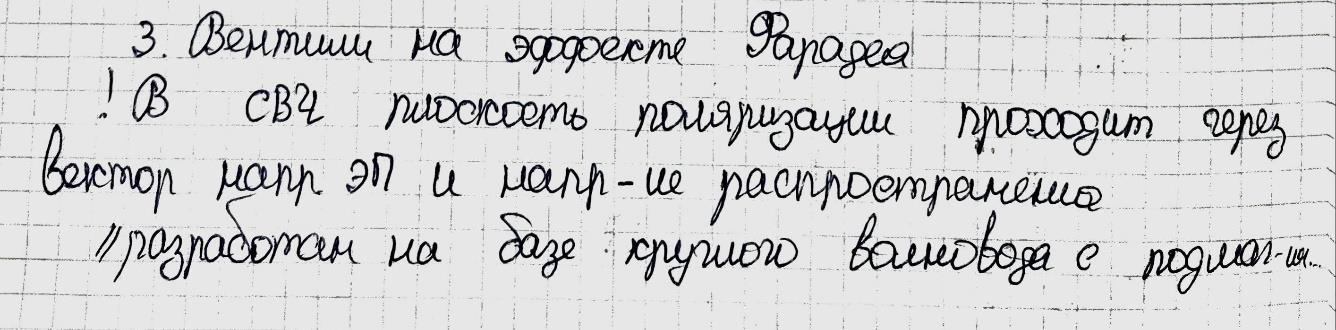 3. Вентили на эффекте Фарадея
! В СВЧ плоскость поляризации проходит через
вектор напр ЭП и напр-ие распространения
// разработан на базе круглого волновода с подмаг-ич...